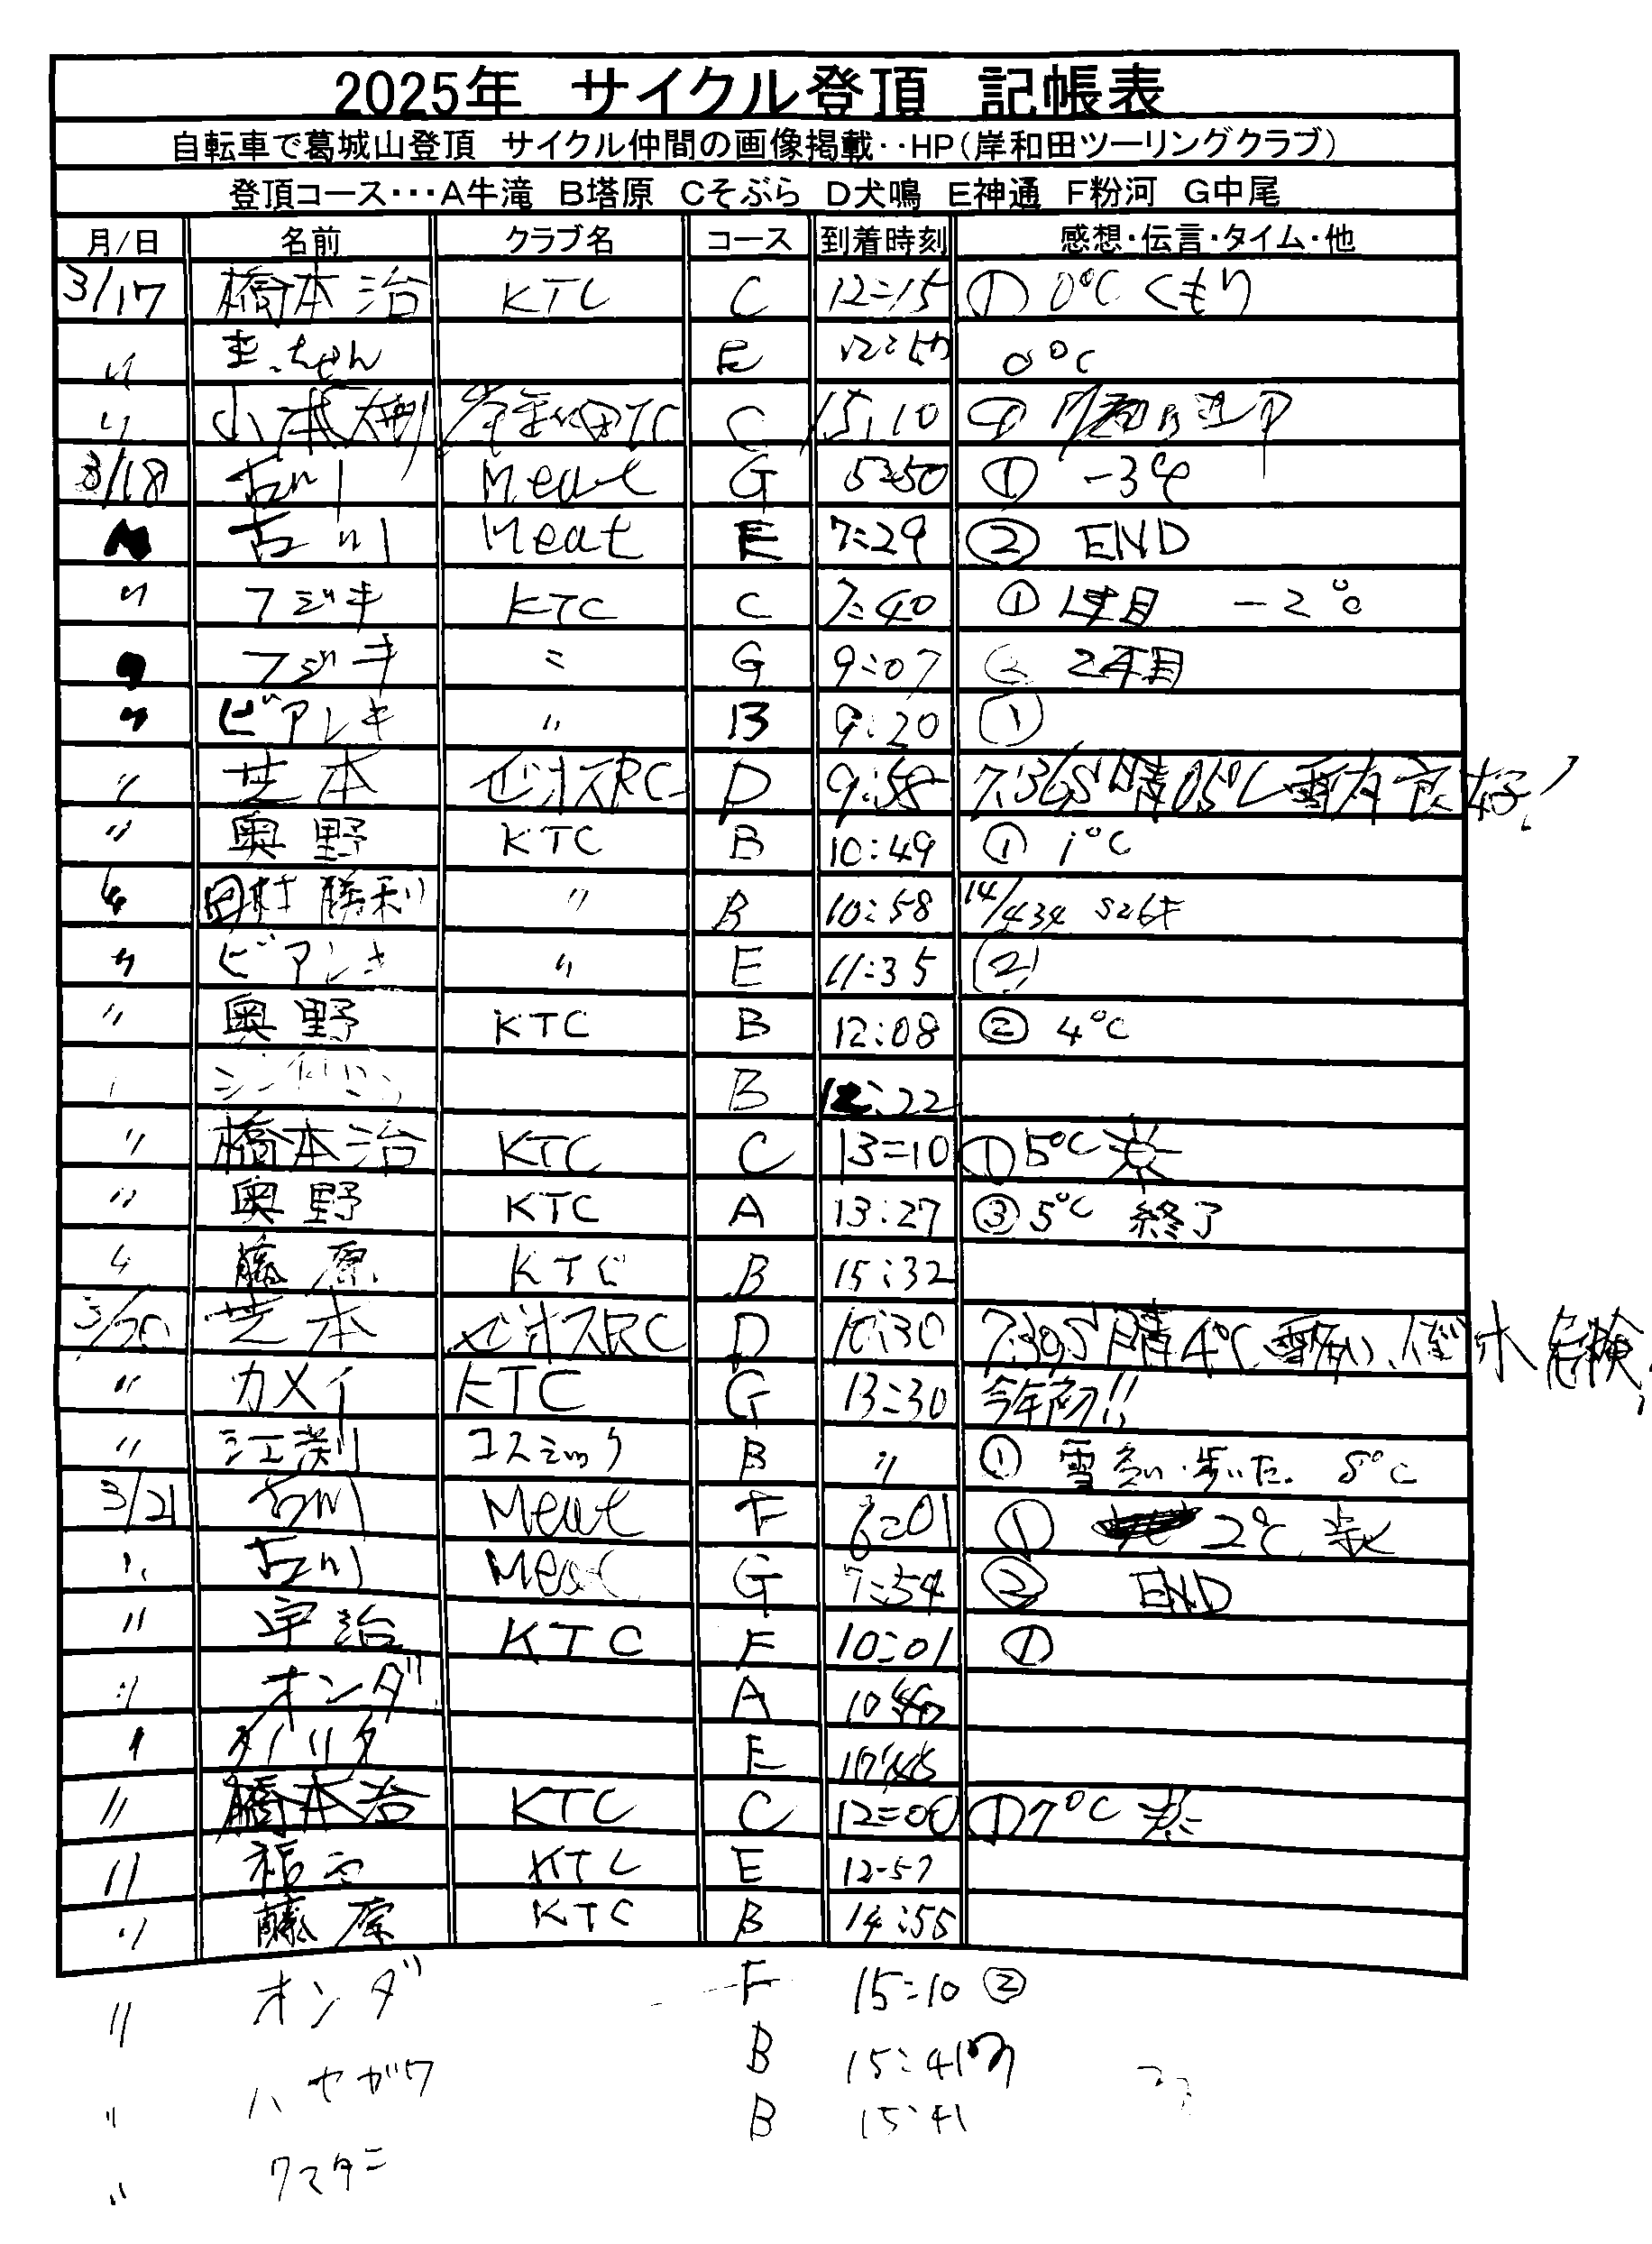 2025年 サイクル登頂 記帳表
自転車で葛城山登頂 サイクル仲間の画像掲載‥HP(岸和田ツーリングクラブ)
登頂コース・・・A牛滝 B塔原 Cそぶら D犬鳴 E神通 F粉河 G中尾
月/日 名前 クラブ名 コース 到着時刻 感想・伝言・タイム・他
3/17 橋本治 KTC C 12=15 ① 0℃ くもり
〃 まっちゃん E 0℃
〃 岸和田TC C 15:10 ①
3/18 古川 Meat G 5:50 ① -3℃
古川 Meat E 7:29 ② END
〃 フジキ KTC C 7:40 ① 1年目 -2℃
フジキ 〃 G 9:07 ② 2年目
〃 ビアンキ 〃 B 9:20 ①
〃 芝本 ビオスRC D 9:58 7:36S 晴 0.5℃ 雪有 良好!
〃 奥野 KTC B 10:49 ① 1℃
〃 田村 勝利 〃 B 10:58 14/434
〃 ビアンキ 〃 E 11:35 ②
〃 奥野 KTC B 12:08 ② 4℃
B 12:22
〃 橋本治 KTC C 13=10 ① 5℃
〃 奥野 KTC A 13:27 ③ 5℃ 終了
〃 藤原 KTC B 15:32
3/20 芝本 ビオスRC D 10:30 7:30S 晴 4℃ 危険!
〃 カメイ KTC G 13:30 今年初!!
〃 江渕 コスミック B 〃 ① 雪多い・歩いた. 8℃
3/21 古川 Meat F 6:01 ① 2℃
〃 古川 Meat G 7:54 ② END
〃 宇治 KTC F 10:01 ①
〃 オンダ A
〃 E
〃 橋本治 KTC C 12=00 ① 7℃
〃 KTC E 12-57
〃 藤原 KTC B 14:55
〃 オンダ F 15:10 ②
〃 ハセガワ B 15:41
〃 クマタニ B 15:41